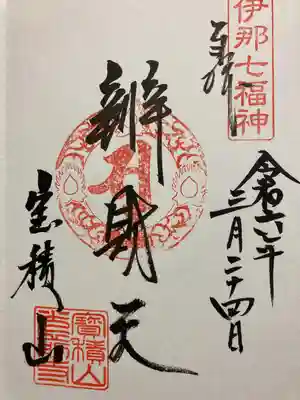 伊那七福神
奉拝
令和六年
三月二十四日
辨財天
宝積山
寳積山